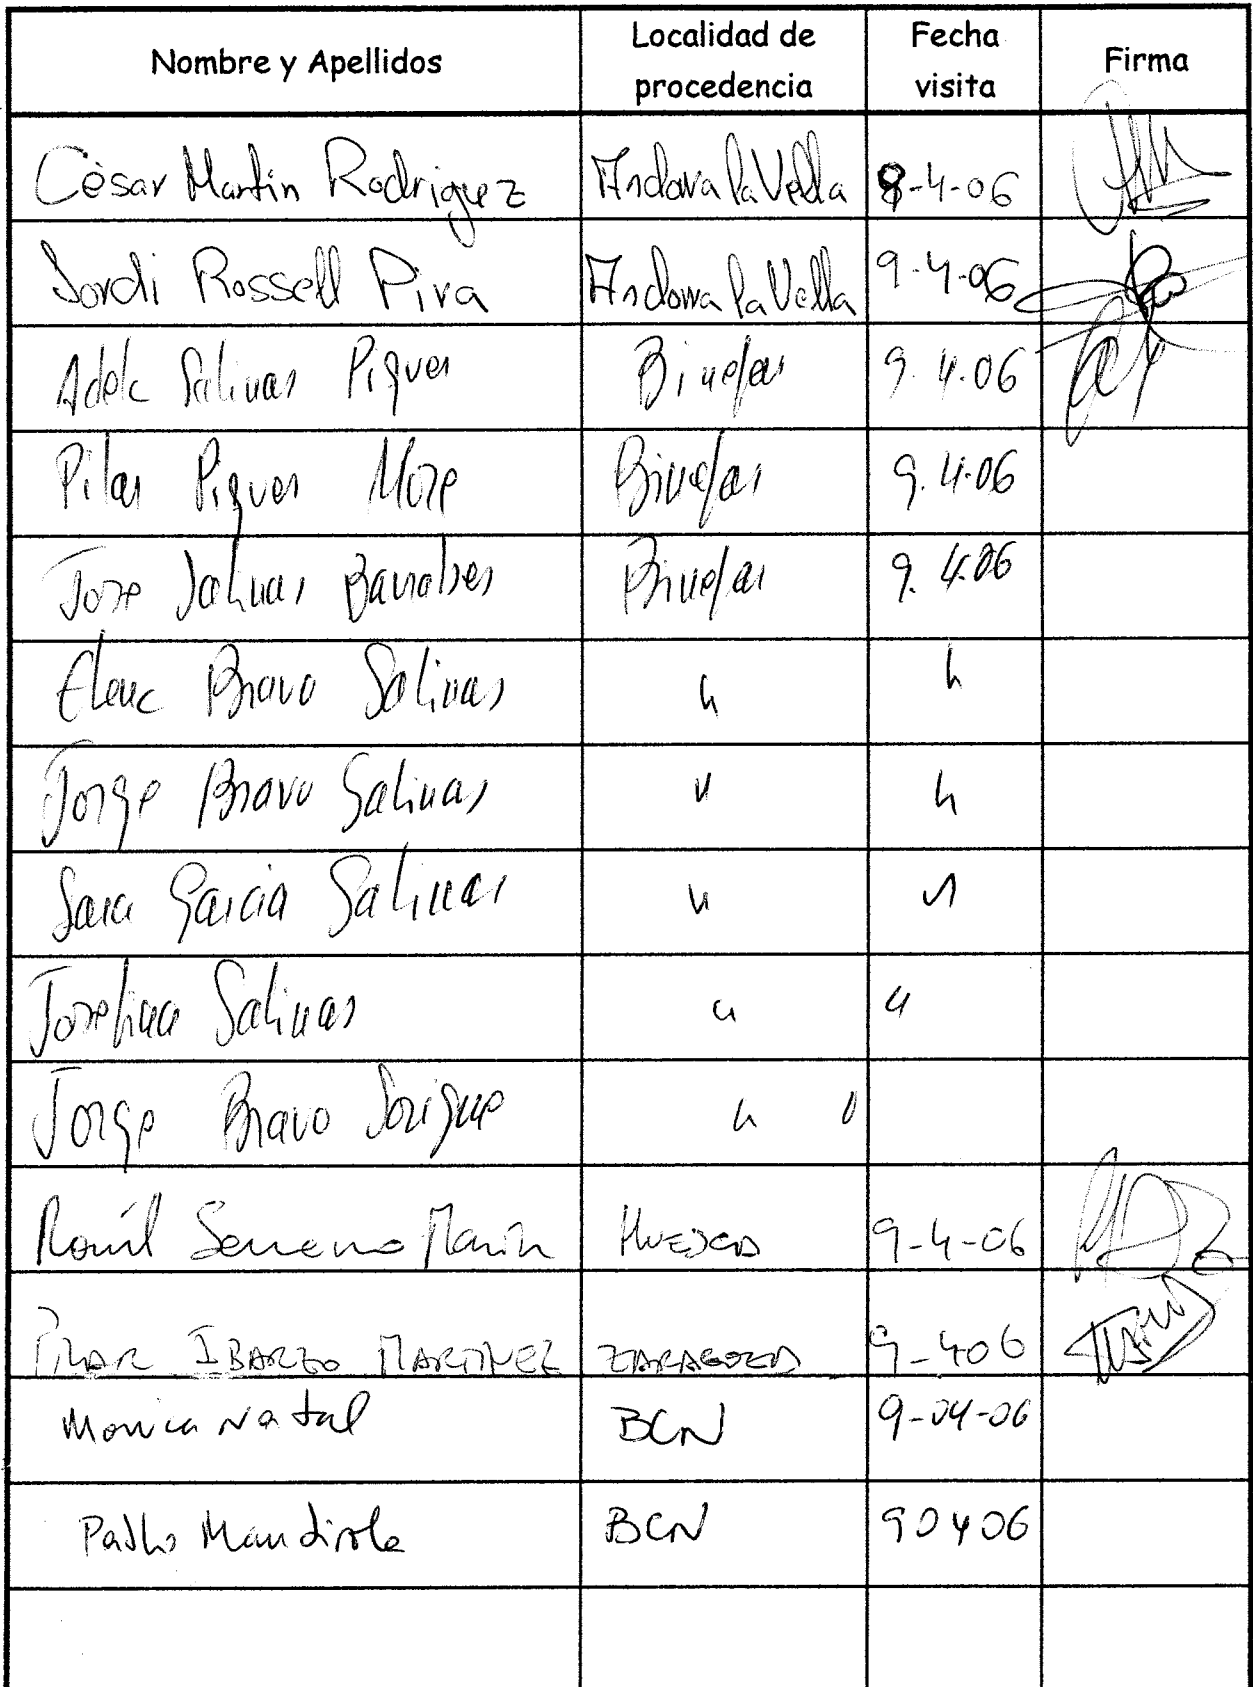 Nombre y Apellidos Localidad de procedencia Fecha visita Firma
Cèsar Martín Rodriguez Andorra la Vella 8-4-06
Jordi Rossell Piva Andorra la Vella 9-4-06
Adela Salinas Piques Binefar 9.4.06
Pilar Piques More Binefar 9.4.06
Jose Salinas Barrabes Binefar 9.4.06
Elena Bravo Salinas " "
Jorge Bravo Salinas " "
Sara Garcia Salinas " "
Josefina Salinas " "
Jorge Bravo Sorigue " "
Raúl Serrano Marín Huesca 9-4-06
PILAR IBARZO MARTINEZ ZARAGOZA 9-406
Monica Natal BCN 9-04-06
Pablo Mandirola BCN 90406